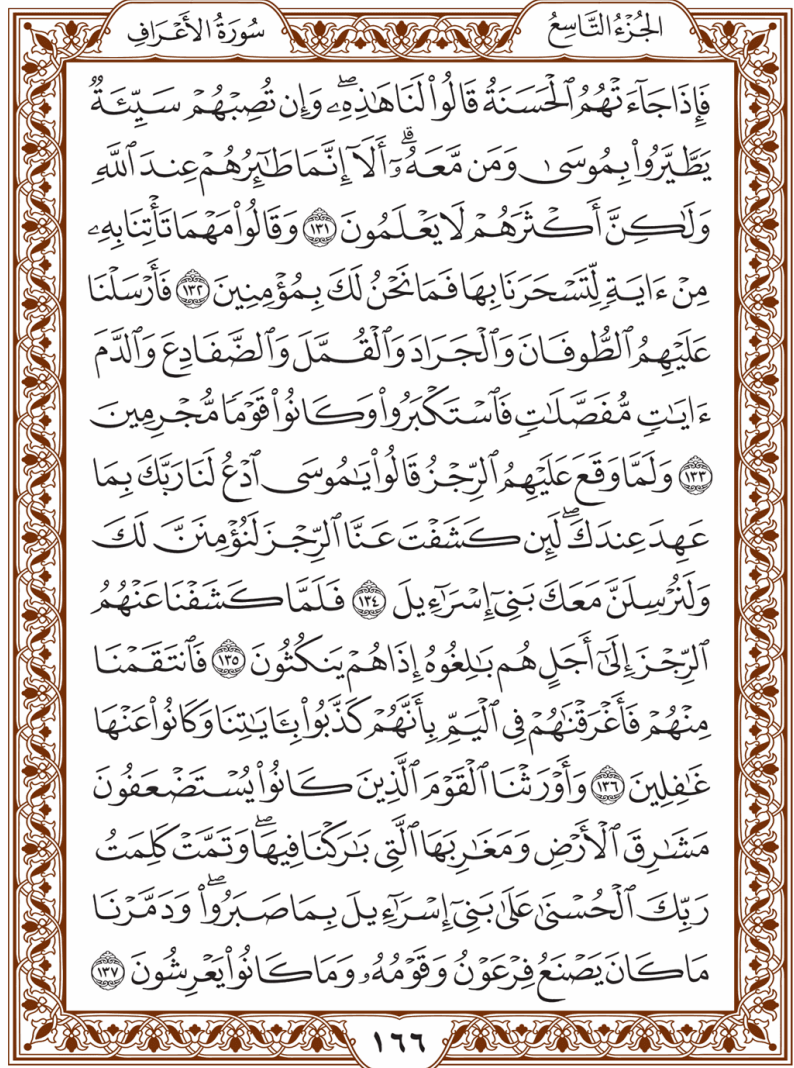 الجُزْءُ التَّاسِعُ
سُورَةُ الأَعْرَافِ
فَإِذَا جَآءَتْهُمُ ٱلْحَسَنَةُ قَالُوا۟ لَنَا هَـٰذِهِۦۖ وَإِن تُصِبْهُمْ سَيِّئَةٌۭ
يَطَّيَّرُوا۟ بِمُوسَىٰ وَمَن مَّعَهُۥٓۗ أَلَآ إِنَّمَا طَـٰٓئِرُهُمْ عِندَ ٱللَّهِ
وَلَـٰكِنَّ أَكْثَرَهُمْ لَا يَعْلَمُونَ ١٣١ وَقَالُوا۟ مَهْمَا تَأْتِنَا بِهِۦ
مِنْ ءَايَةٍۢ لِّتَسْحَرَنَا بِهَا فَمَا نَحْنُ لَكَ بِمُؤْمِنِينَ ١٣٢ فَأَرْسَلْنَا
عَلَيْهِمُ ٱلطُّوفَانَ وَٱلْجَرَادَ وَٱلْقُمَّلَ وَٱلضَّفَادِعَ وَٱلدَّمَ
ءَايَـٰتٍۢ مُّفَصَّلَـٰتٍۢ فَٱسْتَكْبَرُوا۟ وَكَانُوا۟ قَوْمًۭا مُّجْرِمِينَ
١٣٣ وَلَمَّا وَقَعَ عَلَيْهِمُ ٱلرِّجْزُ قَالُوا۟ يَـٰمُوسَى ٱدْعُ لَنَا رَبَّكَ بِمَا
عَهِدَ عِندَكَۖ لَئِن كَشَفْتَ عَنَّا ٱلرِّجْزَ لَنُؤْمِنَنَّ لَكَ
وَلَنُرْسِلَنَّ مَعَكَ بَنِىٓ إِسْرَٰٓءِيلَ ١٣٤ فَلَمَّا كَشَفْنَا عَنْهُمُ
ٱلرِّجْزَ إِلَىٰٓ أَجَلٍ هُم بَـٰلِغُوهُ إِذَا هُمْ يَنكُثُونَ ١٣٥ فَٱنتَقَمْنَا
مِنْهُمْ فَأَغْرَقْنَـٰهُمْ فِى ٱلْيَمِّ بِأَنَّهُمْ كَذَّبُوا۟ بِـَٔايَـٰتِنَا وَكَانُوا۟ عَنْهَا
غَـٰفِلِينَ ١٣٦ وَأَوْرَثْنَا ٱلْقَوْمَ ٱلَّذِينَ كَانُوا۟ يُسْتَضْعَفُونَ
مَشَـٰرِقَ ٱلْأَرْضِ وَمَغَـٰرِبَهَا ٱلَّتِى بَـٰرَكْنَا فِيهَاۖ وَتَمَّتْ كَلِمَتُ
رَبِّكَ ٱلْحُسْنَىٰ عَلَىٰ بَنِىٓ إِسْرَٰٓءِيلَ بِمَا صَبَرُوا۟ۖ وَدَمَّرْنَا
مَا كَانَ يَصْنَعُ فِرْعَوْنُ وَقَوْمُهُۥ وَمَا كَانُوا۟ يَعْرِشُونَ ١٣٧
١٦٦